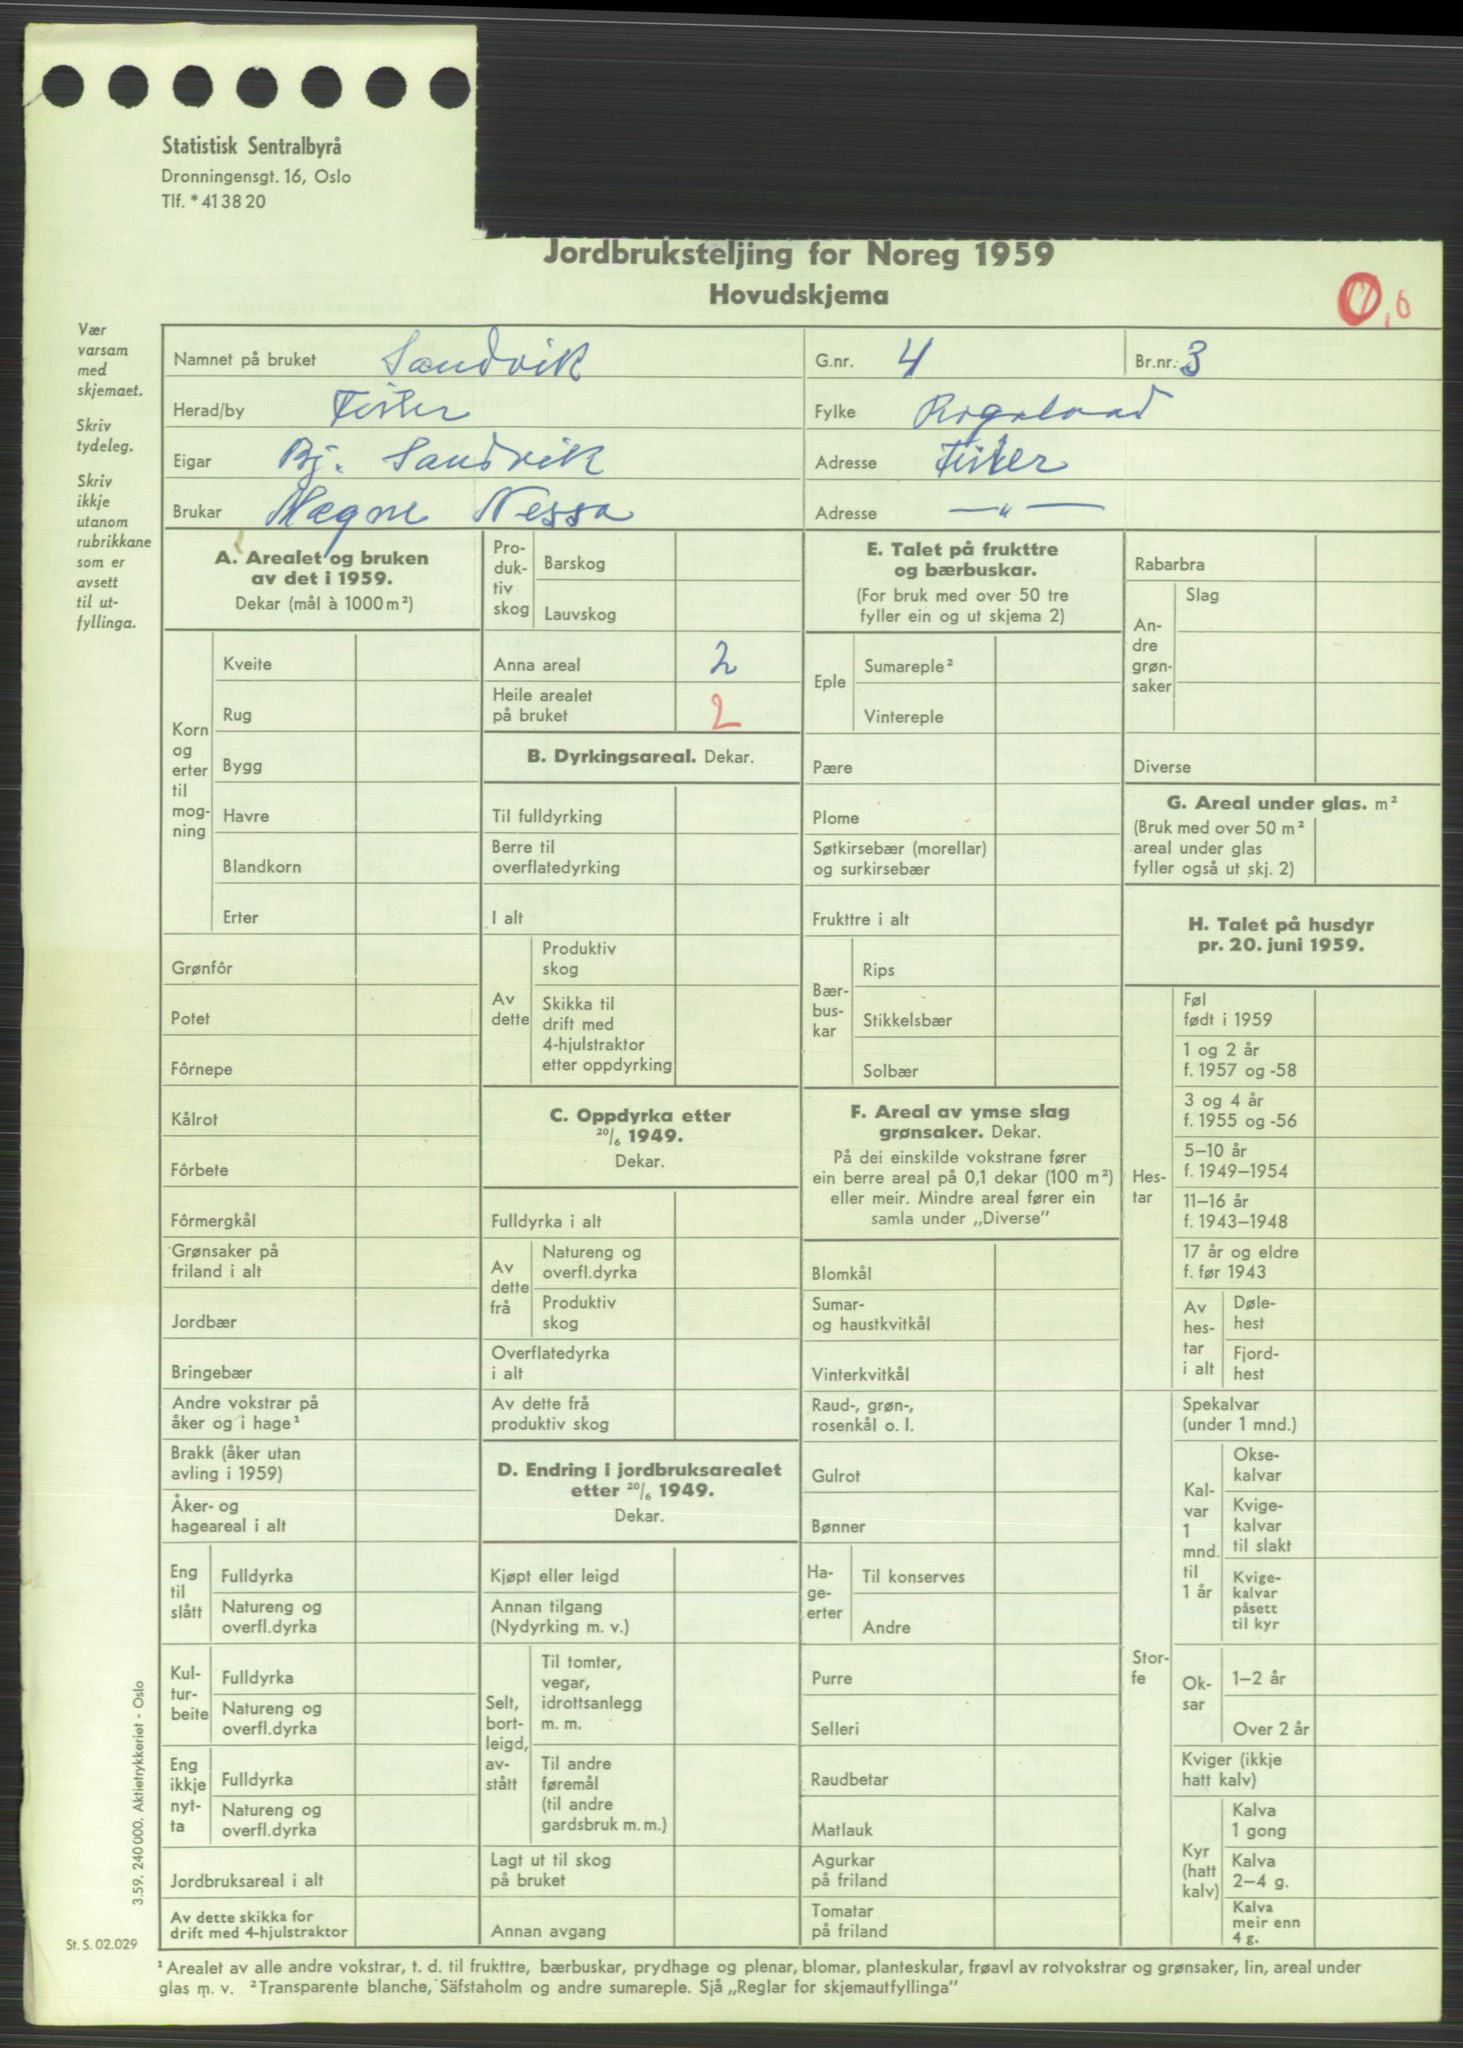 Statistisk Sentralbyrå
Dronningensgt. 16, Oslo
Tlf. * 41 38 20
Jordbruksteljing for Noreg 1959
Hovudskjema
Vær
varsam
med
skjemaet.
Skriv
tydeleg.
Skriv
ikkje
utanom
rubrikkane
som er
avsett
til ut-
fyllinga.
Namnet på bruket Sandvik G.nr. 4 Br.nr. 3
Herad/by Fister Fylke Rogaland
Eigar Bj. Sandvik Adresse Fister
Brukar Magne Nessa Adresse — " —
A. Arealet og bruken
av det i 1959.
Dekar (mål à 1000 m²)
Korn
og
erter
til
mog-
ning
Kveite
Rug
Bygg
Havre
Blandkorn
Erter
Grønfôr
Potet
Fôrnepe
Kålrot
Fôrbete
Fôrmergkål
Grønsaker på
friland i alt
Jordbær
Bringebær
Andre vokstrar på
åker og i hage¹
Brakk (åker utan
avling i 1959)
Åker- og
hageareal i alt
Eng
til
slått
Fulldyrka
Natureng og
overfl.dyrka
Kul-
tur-
beite
Fulldyrka
Natureng og
overfl.dyrka
Eng
ikkje
nyt-
ta
Fulldyrka
Natureng og
overfl.dyrka
Jordbruksareal i alt
Av dette skikka for
drift med 4-hjulstraktor
Pro-
duk-
tiv
skog
Barskog
Lauvskog
Anna areal 2
Heile arealet
på bruket 2
B. Dyrkingsareal. Dekar.
Til fulldyrking
Berre til
overflatedyrking
I alt
Av
dette
Produktiv
skog
Skikka til
drift med
4-hjulstraktor
etter oppdyrking
C. Oppdyrka etter
20/6 1949.
Dekar.
Fulldyrka i alt
Av
dette
frå
Natureng og
overfl.dyrka
Produktiv
skog
Overflatedyrka
i alt
Av dette frå
produktiv skog
D. Endring i jordbruksarealet
etter 20/6 1949.
Dekar.
Kjøpt eller leigd
Annan tilgang
(Nydyrking m. v.)
Selt,
bort-
leigd,
av-
stått
Til tomter,
vegar,
idrottsanlegg
m. m.
Til andre
føremål
(til andre
gardsbruk m. m.)
Lagt ut til skog
på bruket
Annan avgang
E. Talet på frukttre
og bærbuskar.
(For bruk med over 50 tre
fyller ein og ut skjema 2)
Eple
Sumareple²
Vintereple
Pære
Plome
Søtkirsebær (morellar)
og surkirsebær
Frukttre i alt
Bær-
bus-
kar
Rips
Stikkelsbær
Solbær
F. Areal av ymse slag
grønsaker. Dekar.
På dei einskilde vokstrane fører
ein berre areal på 0,1 dekar (100 m²)
eller meir. Mindre areal fører ein
samla under „Diverse”
Blomkål
Sumar-
og haustkvitkål
Vinterkvitkål
Raud-, grøn-,
rosenkål o. l.
Gulrot
Bønner
Ha-
ge-
erter
Til konserves
Andre
Purre
Selleri
Raudbetar
Matlauk
Agurkar
på friland
Tomatar
på friland
Rabarbra
An-
dre
grøn-
saker
Slag
Diverse
G. Areal under glas. m²
(Bruk med over 50 m²
areal under glas
fyller også ut skj. 2)
H. Talet på husdyr
pr. 20. juni 1959.
Hes-
tar
Føl
født i 1959
1 og 2 år
f. 1957 og -58
3 og 4 år
f. 1955 og -56
5–10 år
f. 1949–1954
11–16 år
f. 1943–1948
17 år og eldre
f. før 1943
Av
hes-
tar
i alt
Døle-
hest
Fjord-
hest
Stor-
fe
Spekalvar
(under 1 mnd.)
Kal-
var
1
mnd.
til
1 år
Okse-
kalvar
Kvige-
kalvar
til slakt
Kvige-
kalvar
påsett
til kyr
Ok-
sar
1–2 år
Over 2 år
Kviger (ikkje
hatt kalv)
Kyr
(hatt
kalv)
Kalva
1 gong
Kalva
2–4 g.
Kalva
meir enn
4 g.
3.59. 240 000. Aktietrykkeriet - Oslo
St. S. 02.029
¹ Arealet av alle andre vokstrar, t. d. til frukttre, bærbuskar, prydhage og plenar, blomar, planteskular, frøavl av rotvokstrar og grønsaker, lin, areal under
glas m. v. ² Transparente blanche, Säfstaholm og andre sumareple. Sjå „Reglar for skjemautfyllinga”